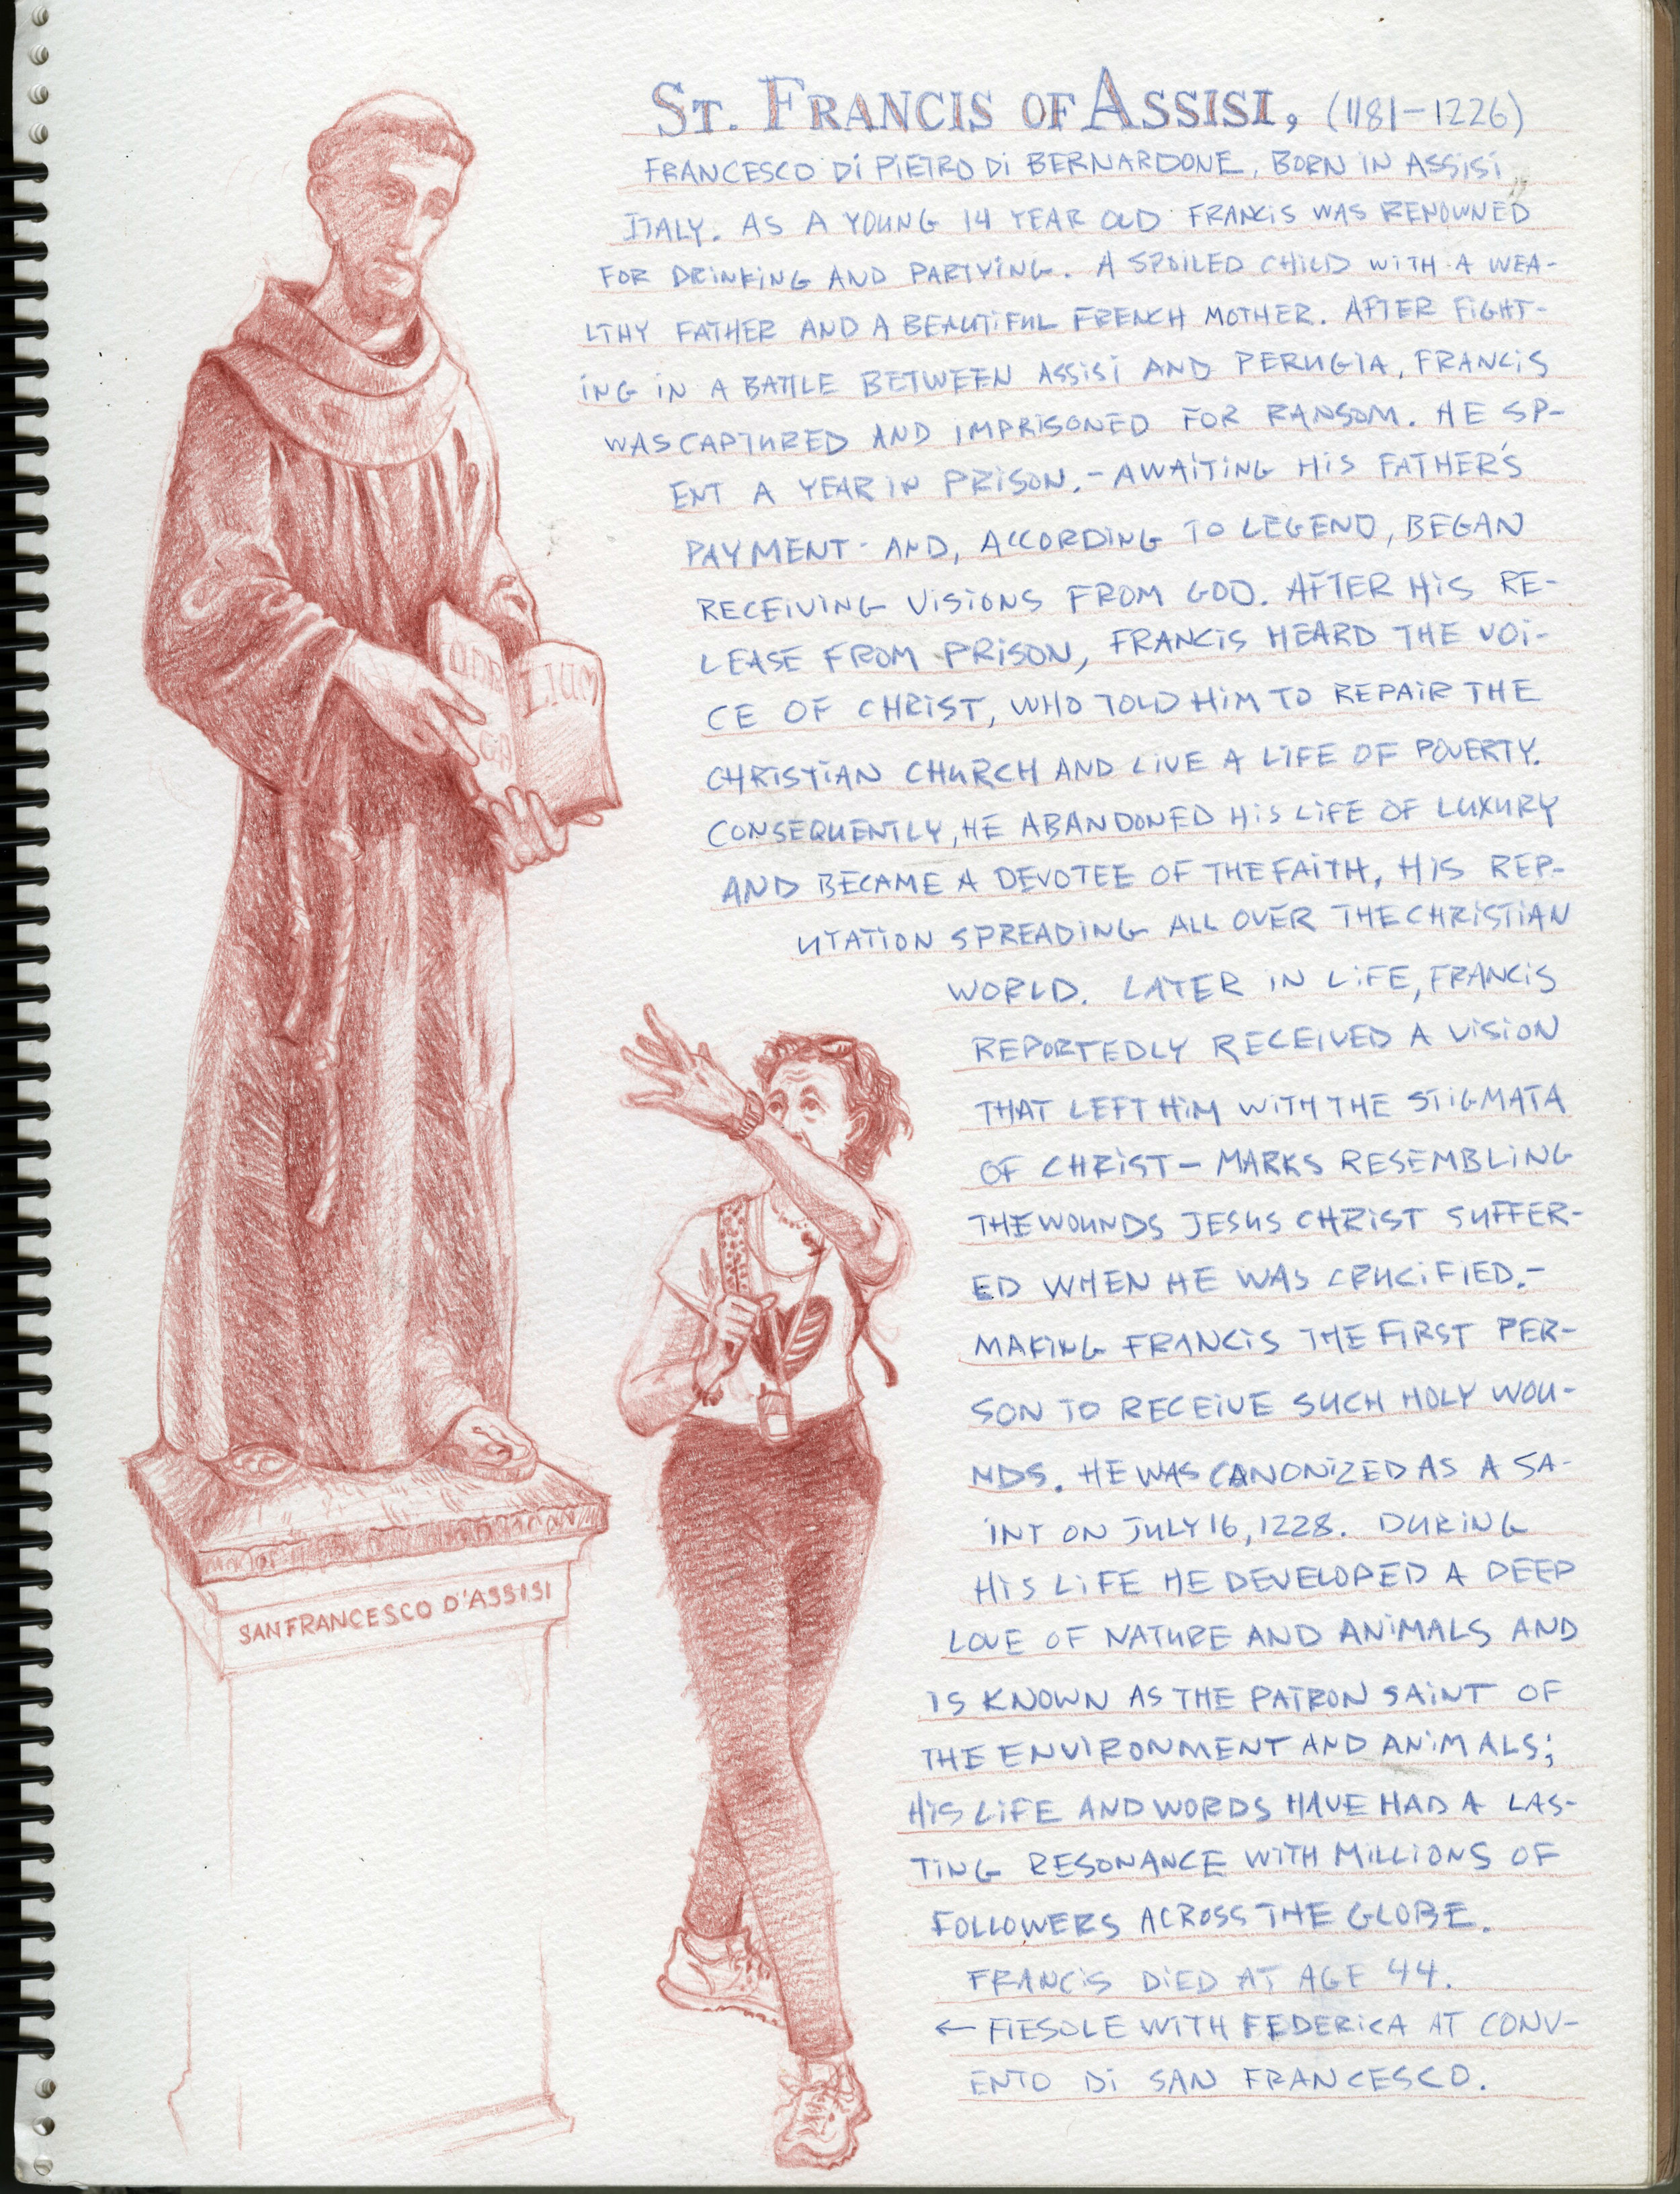 ST. FRANCIS OF ASSISI, (1181-1226)
FRANCESCO DI PIETRO DI BERNARDONE, BORN IN ASSISI,
ITALY. AS A YOUNG 14 YEAR OLD FRANCIS WAS RENOWNED
FOR DRINKING AND PARTYING. A SPOILED CHILD WITH A WEA-
LTHY FATHER AND A BEAUTIFUL FRENCH MOTHER. AFTER FIGHT-
ING IN A BATTLE BETWEEN ASSISI AND PERUGIA, FRANCIS
WAS CAPTURED AND IMPRISONED FOR RANSOM. HE SP-
ENT A YEAR IN PRISON.-AWAITING HIS FATHER'S
PAYMENT- AND, ACCORDING TO LEGEND, BEGAN
RECEIVING VISIONS FROM GOD. AFTER HIS RE-
LEASE FROM PRISON, FRANCIS HEARD THE VOI-
CE OF CHRIST, WHO TOLD HIM TO REPAIR THE
CHRISTIAN CHURCH AND LIVE A LIFE OF POVERTY.
CONSEQUENTLY, HE ABANDONED HIS LIFE OF LUXURY
AND BECAME A DEVOTEE OF THE FAITH, HIS REP-
UTATION SPREADING ALL OVER THE CHRISTIAN
WORLD. LATER IN LIFE, FRANCIS
REPORTEDLY RECEIVED A VISION
THAT LEFT HIM WITH THE STIGMATA
OF CHRIST- MARKS RESEMBLING
THE WOUNDS JESUS CHRIST SUFFER-
ED WHEN HE WAS CRUCIFIED.-
MAKING FRANCIS THE FIRST PER-
SON TO RECEIVE SUCH HOLY WOU-
NDS. HE WAS CANONIZED AS A SA-
INT ON JULY 16, 1228. DURING
HIS LIFE HE DEVELOPED A DEEP
LOVE OF NATURE AND ANIMALS AND
IS KNOWN AS THE PATRON SAINT OF
THE ENVIRONMENT AND ANIMALS;
HIS LIFE AND WORDS HAVE HAD A LAS-
TING RESONANCE WITH MILLIONS OF
FOLLOWERS ACROSS THE GLOBE.
FRANCIS DIED AT AGE 44.
← FIESOLE WITH FEDERICA AT CONV-
ENTO DI SAN FRANCESCO.
LIUM
SAN FRANCESCO D'ASSISI